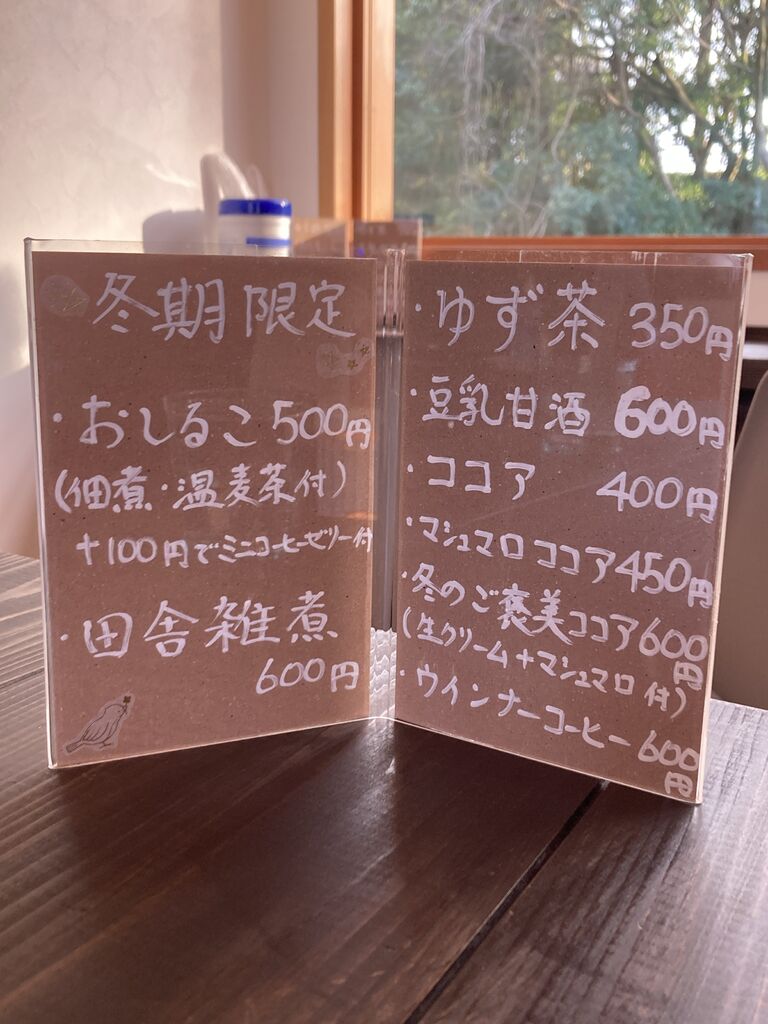 冬期限定
・おしるこ 500円
(佃煮・温麦茶付)
+100円でミニコーヒーゼリー付
・田舎雑煮
600円
・ゆず茶 350円
・豆乳甘酒 600円
・ココア 400円
・マシュマロココア450円
・冬のご褒美ココア600円
(生クリーム+マシュマロ付)
・ウインナーコーヒー600円